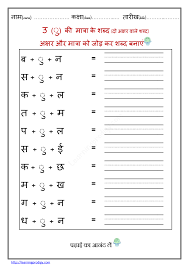 नाम(name) कक्षा(class) तारीख(date)
उ ( ु ) की मात्रा के शब्द (दो अक्षर वाले शब्द)
अक्षर और मात्रा को जोड़ कर शब्द बनाएं
ब + ु + न =
स + ु + न =
क + ु + ल =
त + ु + म =
प + ु + ल =
स + ु + ई =
क + ु + छ =
म + ु + ख =
ग + ु + न =
ध + ु + न =
पढ़ाई का आनंद लें